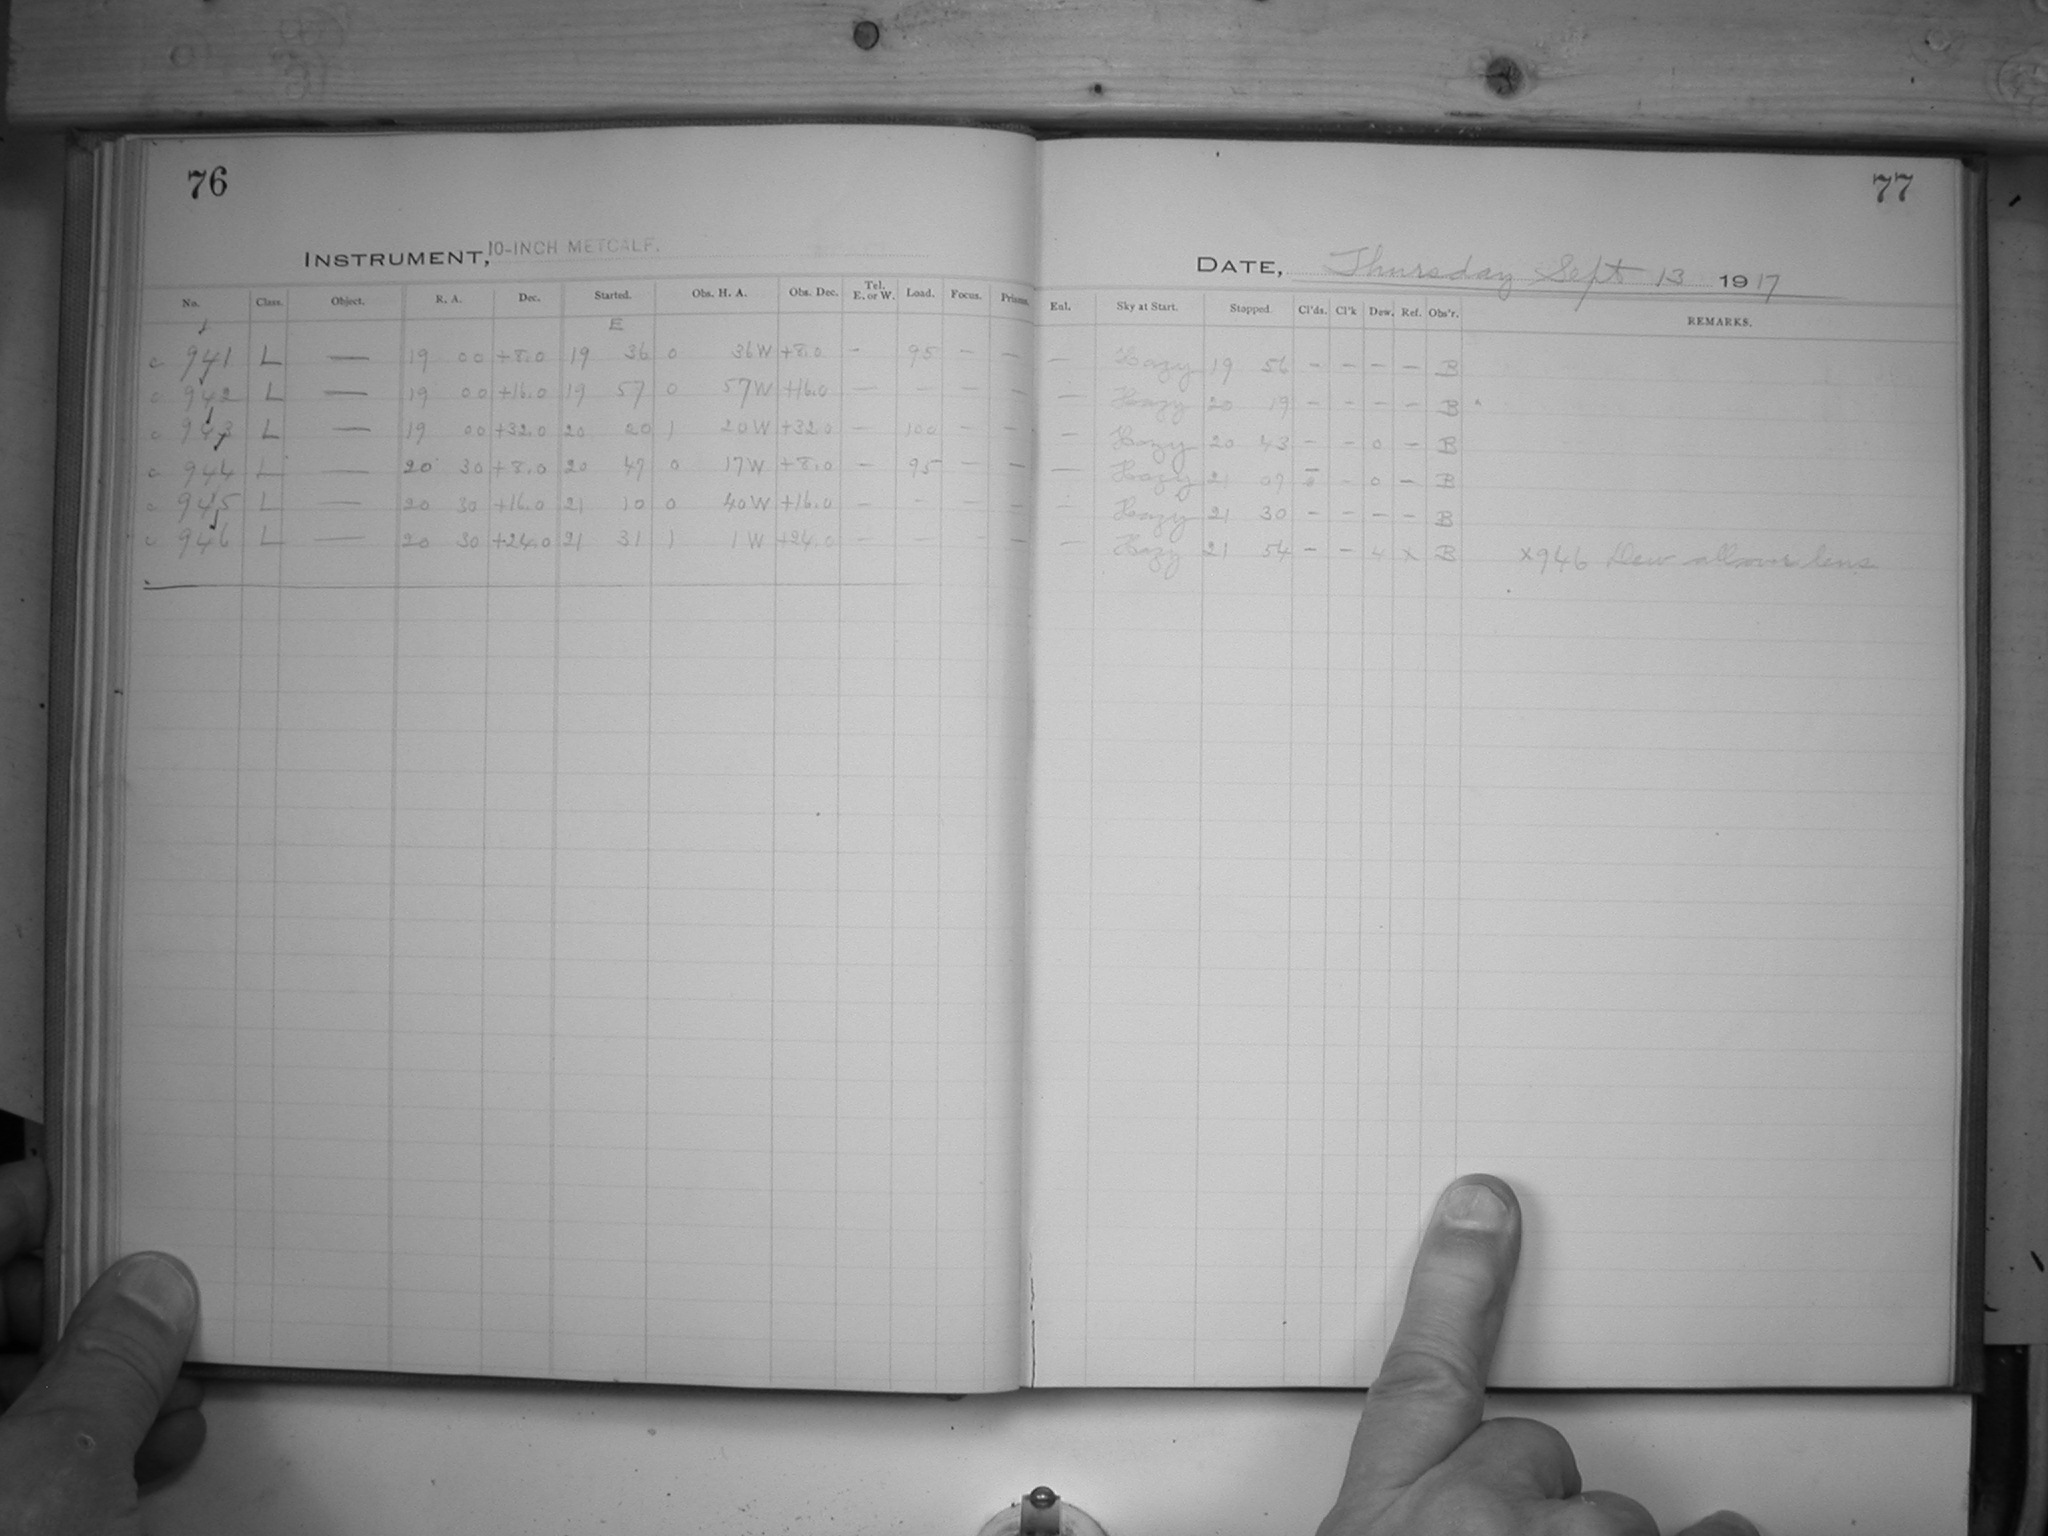 76
77
INSTRUMENT, 10-INCH METCALF.
DATE, Thursday Sept 13 1917
No. Class. Object. R. A. Dec. Started. Obs. H. A. Obs. Dec. Tel. E. or W. Load. Focus. Prisms. Enl. Sky at Start. Stopped. Cl'ds. Cl'k Dew. Ref. Obs'r. REMARKS.
E
c 941 L — 19 00 +8.0 19 36 0 36W +8.0 - 95 - - - Hazy 19 56 - - - - B
c 942 L — 19 00 +16.0 19 57 0 57W +16.0 - - - - - Hazy 20 19 - - - - B
c 943 L — 19 00 +32.0 20 20 1 20W +32.0 - 100 - - - Hazy 20 43 - - 0 - B
c 944 L — 20 30 +8.0 20 47 0 17W +8.0 - 95 - - - Hazy 21 07 - - 0 - B
c 945 L — 20 30 +16.0 21 10 0 40W +16.0 - - - - - Hazy 21 30 - - - - B
c 946 L — 20 30 +24.0 21 31 1 1W +24.0 - - - - - Hazy 21 54 - - 4 x B x946 Dew all over lens